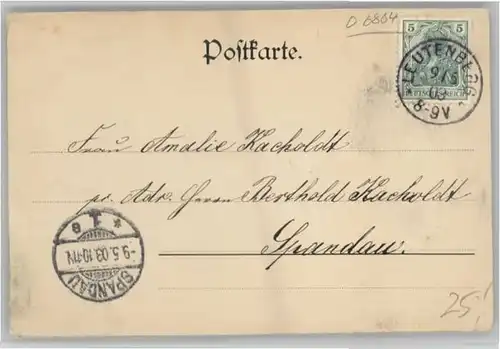 D 6864
Postkarte.
5 5
LEUTENBERG
9/5
03
8-9V
Frau Amalie Kacholdt
pr. Adr. Herrn Berthold Kacholdt
Spandau.
* 1 e
-9.5.03.10-11V.
SPANDAU
25!